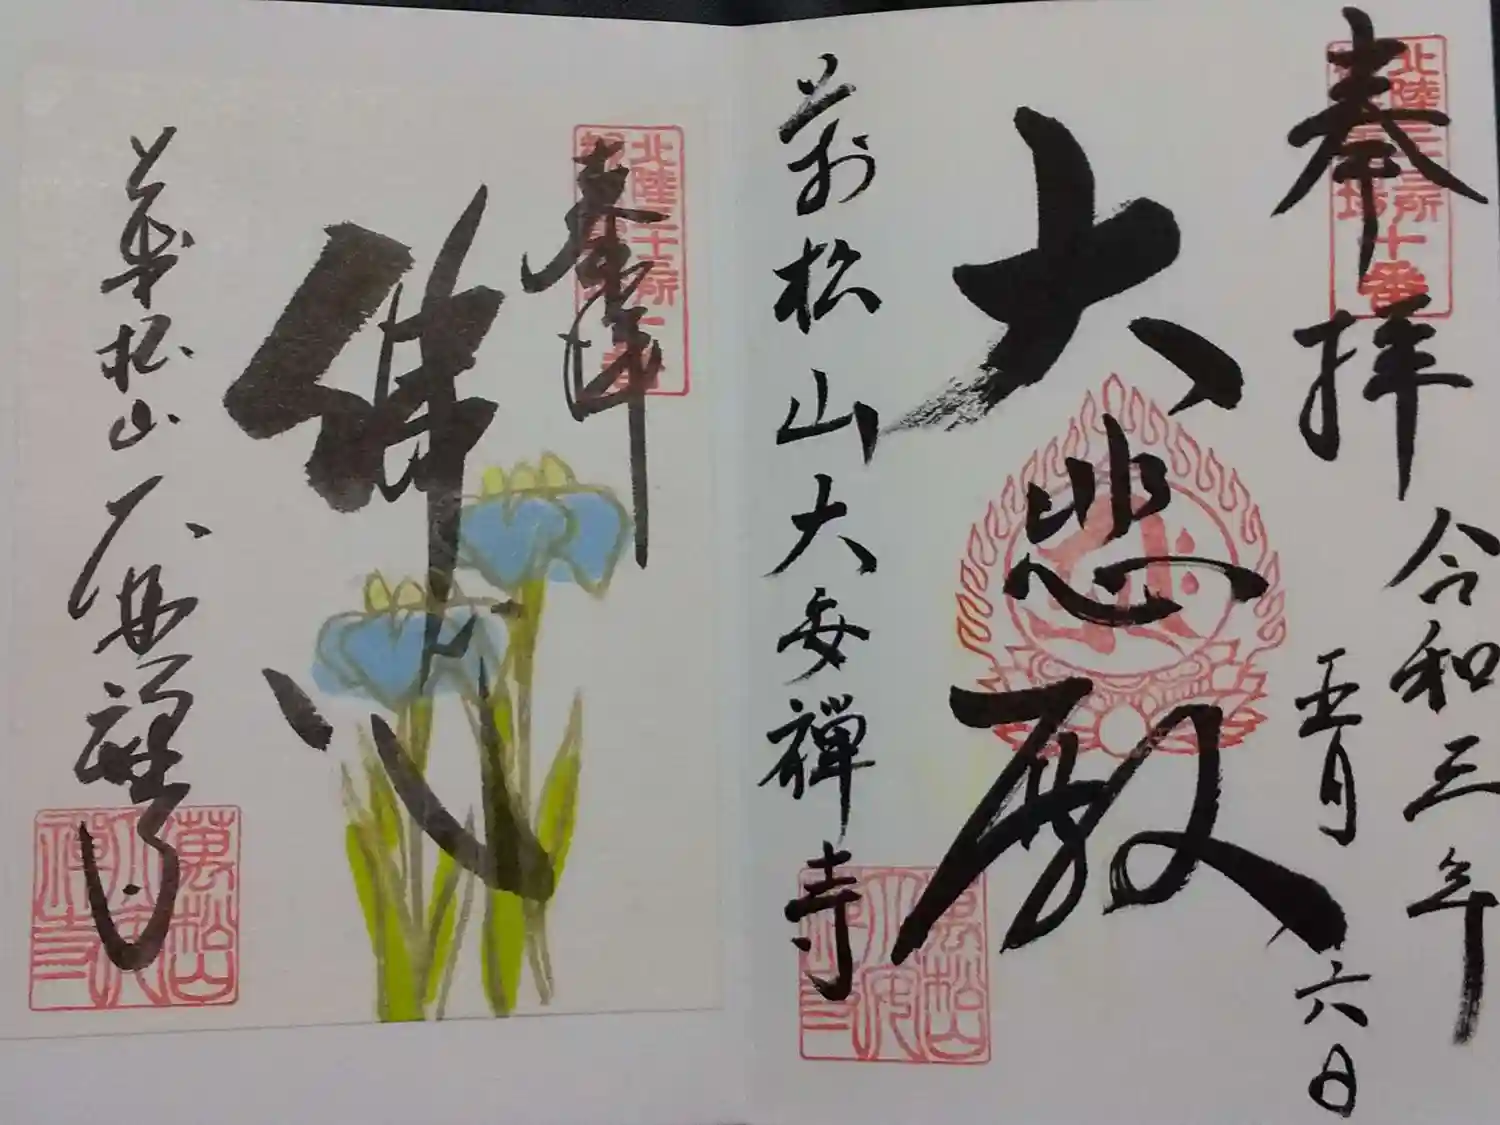 奉拝
令和三年
五月六日
大悲殿
萬松山大安禅寺
北陸三十三所
観音霊場十番
萬松山
大安
禅寺
奉拝
佛心
萬松山大安禅寺
北陸三十三所
萬松山
大安
禅寺